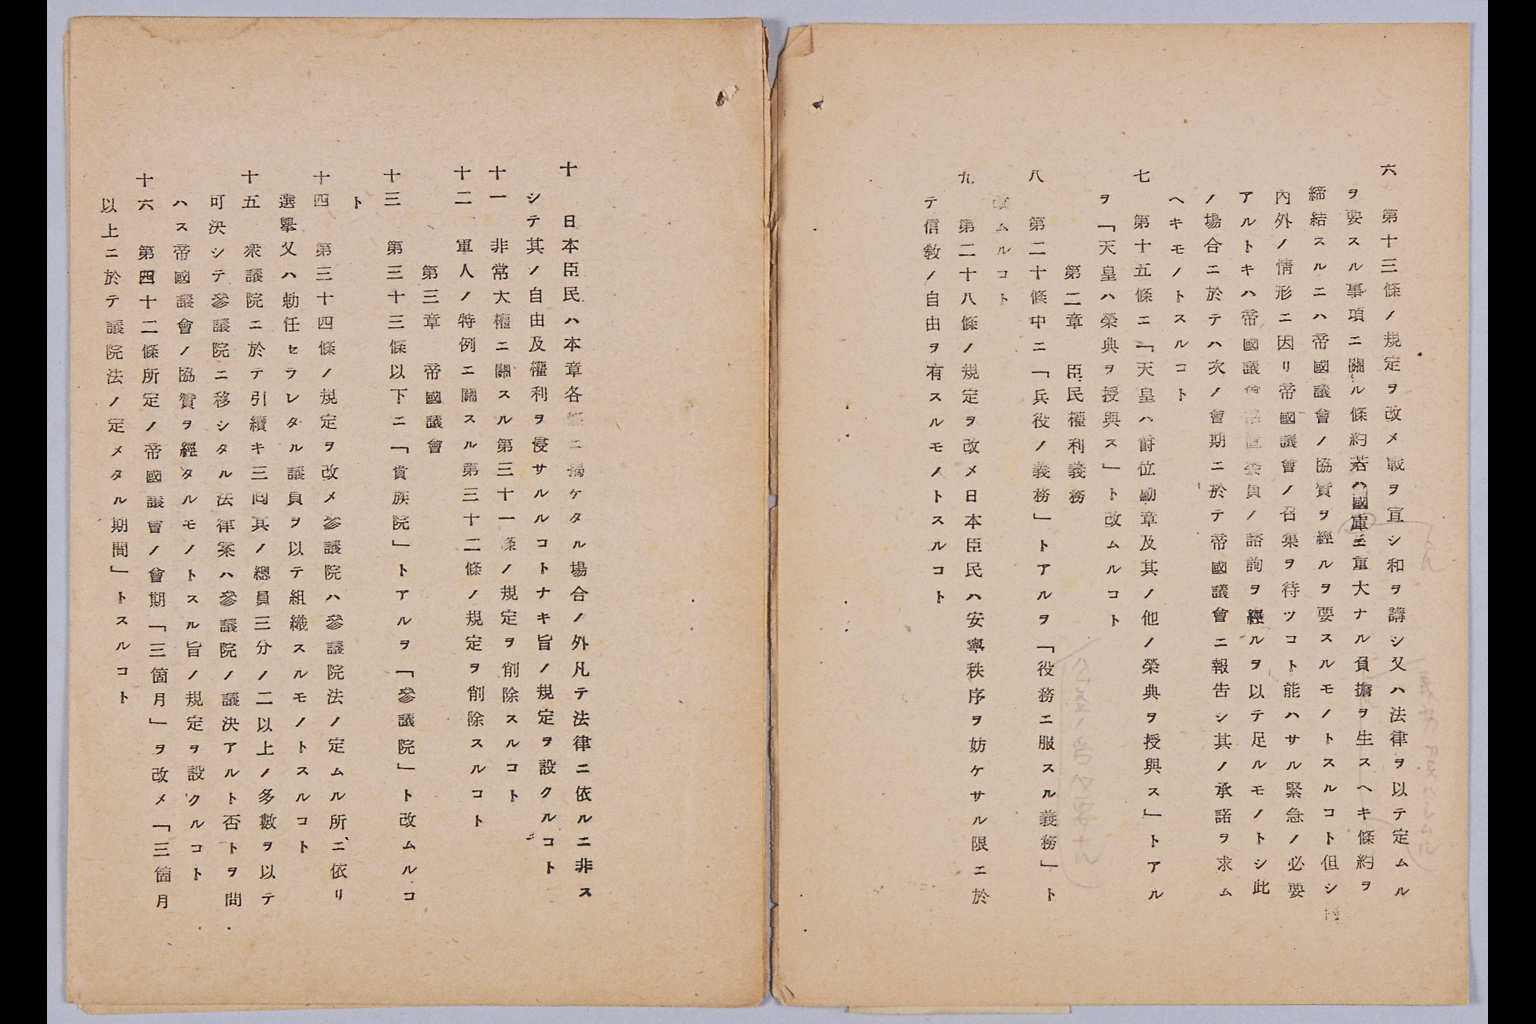 六　第十三條ノ規定ヲ改メ戰ヲ宣シ和ヲ講シ又ハ法律ヲ以テ定ムル
ヲ要スル事項ニ關ル條約若ハ國庫ニ重大ナル負擔ヲ生スヘキ條約ヲ
締結スルニハ帝國議會ノ協賛ヲ經ルヲ要スルモノトスルコト但シ
內外ノ情形ニ因リ帝國議會ノ召集ヲ待ツコト能ハサル緊急ノ必要
アルトキハ帝國議會常置委員ノ諮詢ヲ經ルヲ以テ足ルモノトシ此
ノ場合ニ於テハ次ノ會期ニ於テ帝國議會ニ報告シ其ノ承諾ヲ求ム
ヘキモノトスルコト
七　第十五條ニ「天皇ハ爵位勳章及其ノ他ノ榮典ヲ授與ス」トアル
ヲ「天皇ハ榮典ヲ授與ス」ト改ムルコト
第二章　臣民權利義務
八　第二十條中ニ「兵役ノ義務」トアルヲ「役務ニ服スル義務」ト
改ムルコト
九　第二十八條ノ規定ヲ改メ日本臣民ハ安寧秩序ヲ妨ケサル限ニ於
テ信敎ノ自由ヲ有スルモノトスルコト
十　日本臣民ハ本章各條ニ揭ケタル場合ノ外凡テ法律ニ依ルニ非ス
シテ其ノ自由及權利ヲ侵サルルコトナキ旨ノ規定ヲ設クルコト
十一　非常大權ニ關スル第三十一條ノ規定ヲ削除スルコト
十二　軍人ノ特例ニ關スル第三十二條ノ規定ヲ削除スルコト
第三章　帝國議會
十三　第三十三條以下ニ「貴族院」トアルヲ「參議院」ト改ムルコ
ト
十四　第三十四條ノ規定ヲ改メ參議院ハ參議院法ノ定ムル所ニ依リ
選擧又ハ勅任セラレタル議員ヲ以テ組織スルモノトスルコト
十五　衆議院ニ於テ引續キ三囘其ノ總員三分ノ二以上ノ多數ヲ以テ
可決シテ參議院ニ移シタル法律案ハ參議院ノ議決アルト否トヲ問
ハス帝國議會ノ協賛ヲ經タルモノトスル旨ノ規定ヲ設クルコト
十六　第四十二條所定ノ帝國議會ノ會期「三箇月」ヲ改メ「三箇月
以上ニ於テ議院法ノ定メタル期間」トスルコト